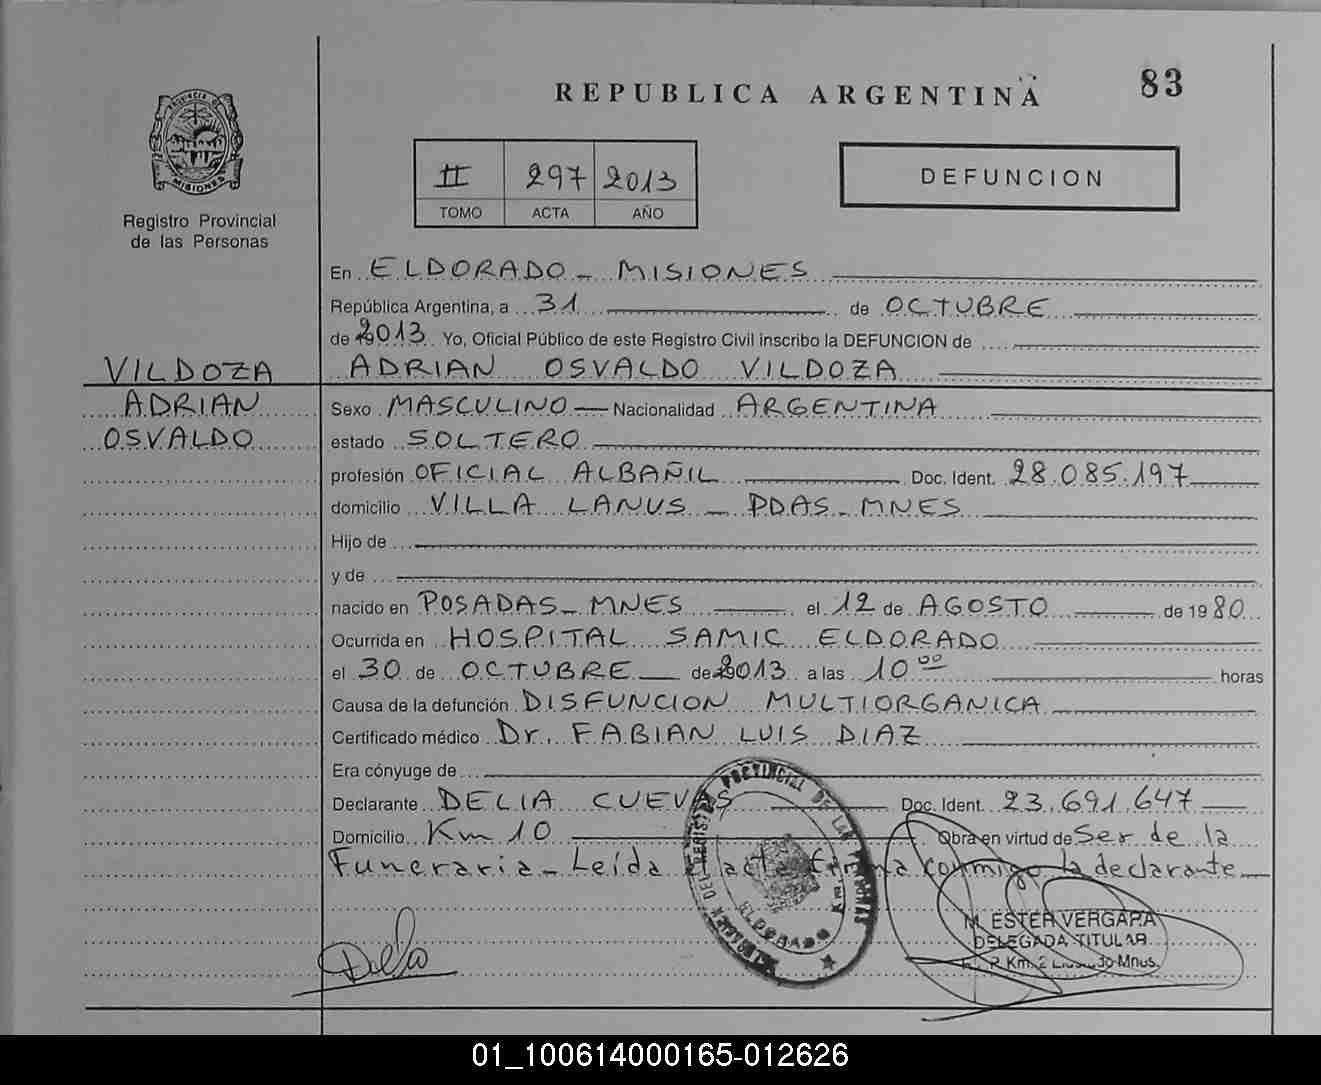 REPUBLICA ARGENTINA
83
PROVINCIA DE
MISIONES
Registro Provincial
de las Personas
II 297 2013
TOMO ACTA AÑO
DEFUNCION
En ELDORADO - MISIONES
República Argentina, a 31 de OCTUBRE
de 2013 Yo, Oficial Público de este Registro Civil inscribo la DEFUNCION de
VILDOZA
ADRIAN OSVALDO VILDOZA
ADRIAN
OSVALDO
Sexo MASCULINO Nacionalidad ARGENTINA
estado SOLTERO
profesión OFICIAL ALBAÑIL Doc. Ident. 28.085.197
domicilio VILLA LANUS - PDAS - MNES
Hijo de
y de
nacido en POSADAS - MNES el 12 de AGOSTO de 1980
Ocurrida en HOSPITAL SAMIC ELDORADO
el 30 de OCTUBRE de 2013 a las 10 00 horas
Causa de la defunción DISFUNCION MULTIORGANICA
Certificado médico Dr. FABIAN LUIS DIAZ
Era cónyuge de
Declarante DELIA CUEVAS Doc. Ident. 23.691.647
Domicilio Km 10 Obra en virtud de Ser de la
Funeraria - Leída el acta firma conmigo la declarante
PROVINCIAL DE LAS PERSONAS
ELDORADO
M. ESTER VERGARA
DELEGADA TITULAR
R. P. Km. 2 Mnes.
01_100614000165-012626